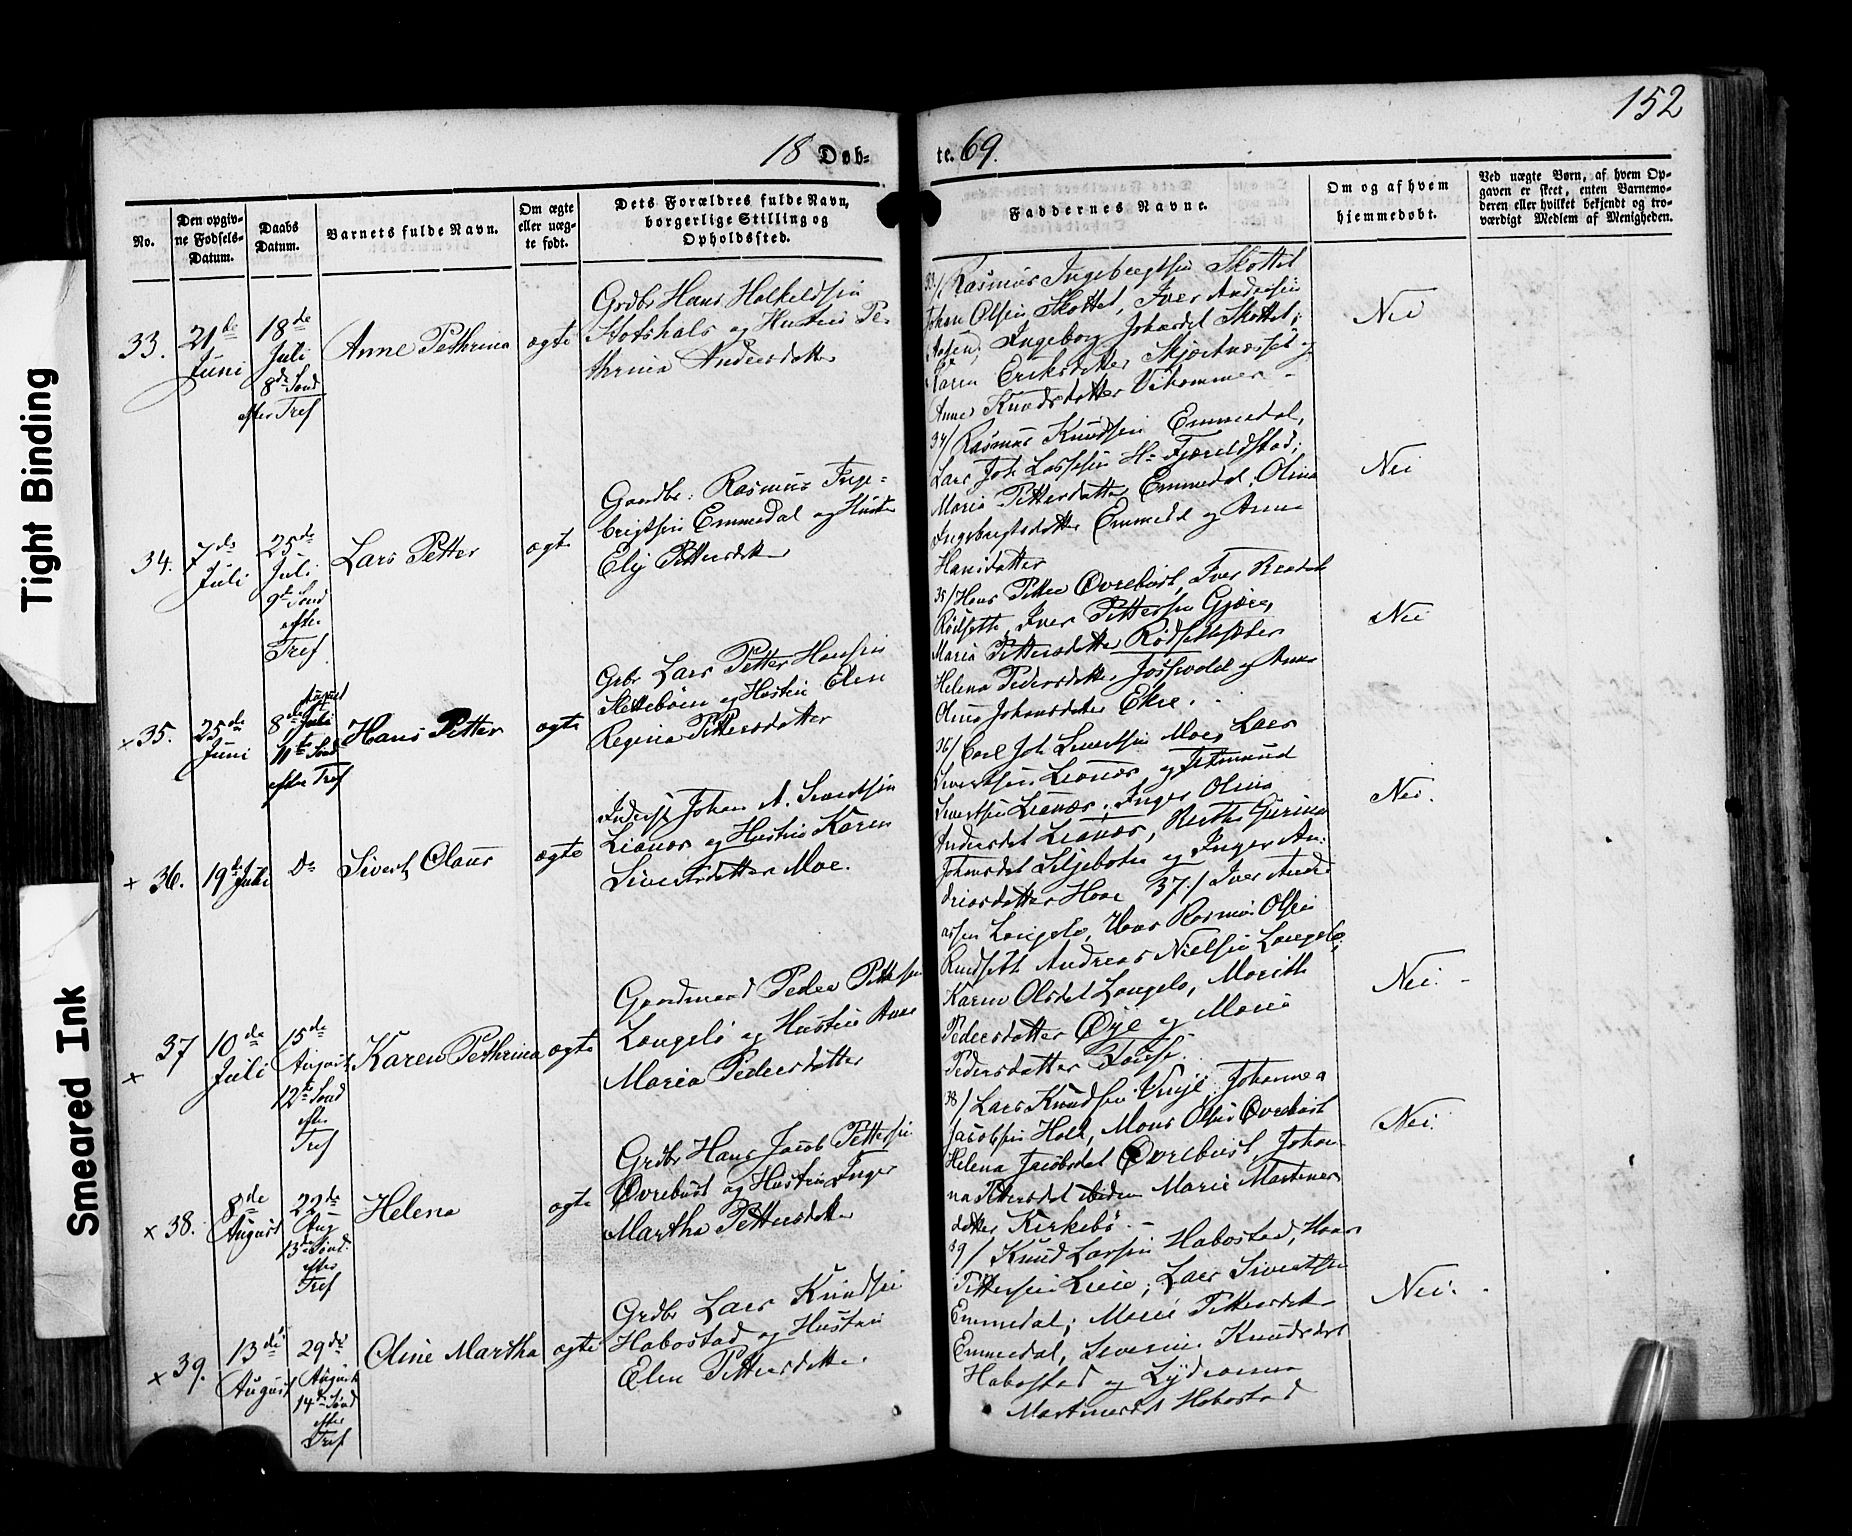 152
18 Døb-
te. 69.
No.
Den opgiv-
ne Fødsels-
Datum.
Daabs
Datum.
Barnets fulde Navn.
Om ægte
eller uæg-
te født.
Dets Forældres fulde Navn,
borgerlige Stilling og
Opholdssted.
Faddernes Navne.
Om og af hvem
hjemmedøbt.
Ved uægte Børn, af hvem Op-
gaven er skeet, enten Barnemo-
deren eller hvilket bekjendt og tro-
værdigt Medlem af Menigheden.
33.
21de
Juni
18de
Juli
8de Sønd
efter Tref
Anne Pethrina
ægte
Grdbr Hans
og Hustru Pe-
thrina Andersdatter
33/ Rasmus Ingebrigtsen Skottet
Johan Olsen Skottet, Iver Andersen
Ingeborg Johansdet Skottet;
Karen Eriksdatter
Anne Knudsdatter
Nei
34.
7de
Juli
25de
Juli
9de Sønd
efter
Tref
Lars Petter
ægte
Gaardbr: Rasmus Inge-
brigtsen Emmedal og Hustru
Elij Pettersdtr
34/ Rasmus Knudsen Emmedal,
Lars Joh Larsen H. Fjæreldstad;
Maria Pettersdatter Emmedal, Olina
Ingebrigtsdatter Emmedal og Anna
Hansdatter
Nei
x 35.
25de
Juni
8de August
Juli
11te Sønd
efter Tref
Hans Petter
ægte
Grbr Lars Petter Hansen
og Hustru Elen
Regina Pettersdatter
35/ Hans Petter Øvrebust, Iver
Rødsette, Iver Pettersen Gjære,
Maria Pettersdatter
Helena Pedersdatter og Anna
Olina Johansdatter Ekre.
Nei
x 36.
19de Juli
Do
Sivert Olaus
ægte
Inderst Johan A. Sivertsen
Lianæs og Hustru Karen
Sivertsdatter Moe.
36/ Carl Joh Sivertsen Moe, Lars
Sivertsen Lianæs, og
Sivertsen Lianæs, Inger Olina
Andersdet Lianæs, Gurina
Johansdet Liljebote og Inger An-
driasdatter Haae
Nei.
x 37
10de
Juli
15de
August
12te Sønd
efter
Tref
Karen Pethrina
ægte
Gaardmand Peder Pettersen
Langelo og Hustru Anne
Maria Pedersdatter
37./ Iver Andre
assen Langelo, Hans Rasmus Olsen
Andreas Nielsen Langelo,
Karen Olsdet Langelo, Marith
Pedersdatter Øye og Maria
Pedersdatter
Nei.
x 38.
8de
August
22de
Aug
13de Sønd.
efter
Tref
Helena
ægte
Grdbr Hans Jacob Pettersen
Øvrebust og Hustru Inger
Martha Pettersdtr
38/ Lars Knudsen Vinje, Johannes
Jacobsen Hole, Mons Olsen Øvrebust
Helena Jacobsdet Øvrebust, Johan-
na Pettersdet ibiden Marie Martines
datter Kirkebø.
Nei.
x 39.
13de
August
29de
August
14de Sønd
efter
Tref
Oline Martha
ægte
Grdbr Lars Knudsen
Habostad og Hustru
Elen Pettersdatter.
39/ Knud Larsen Habostad, Hans
Pettersen Liere, Lars Sivertsen
Emmedal; Marie Pettersdtr
Emmedal, Severine Knudsdet
Habostad og Lydianna
Martinesdet Habostad
Nei.
Tight Binding
Smeared Ink